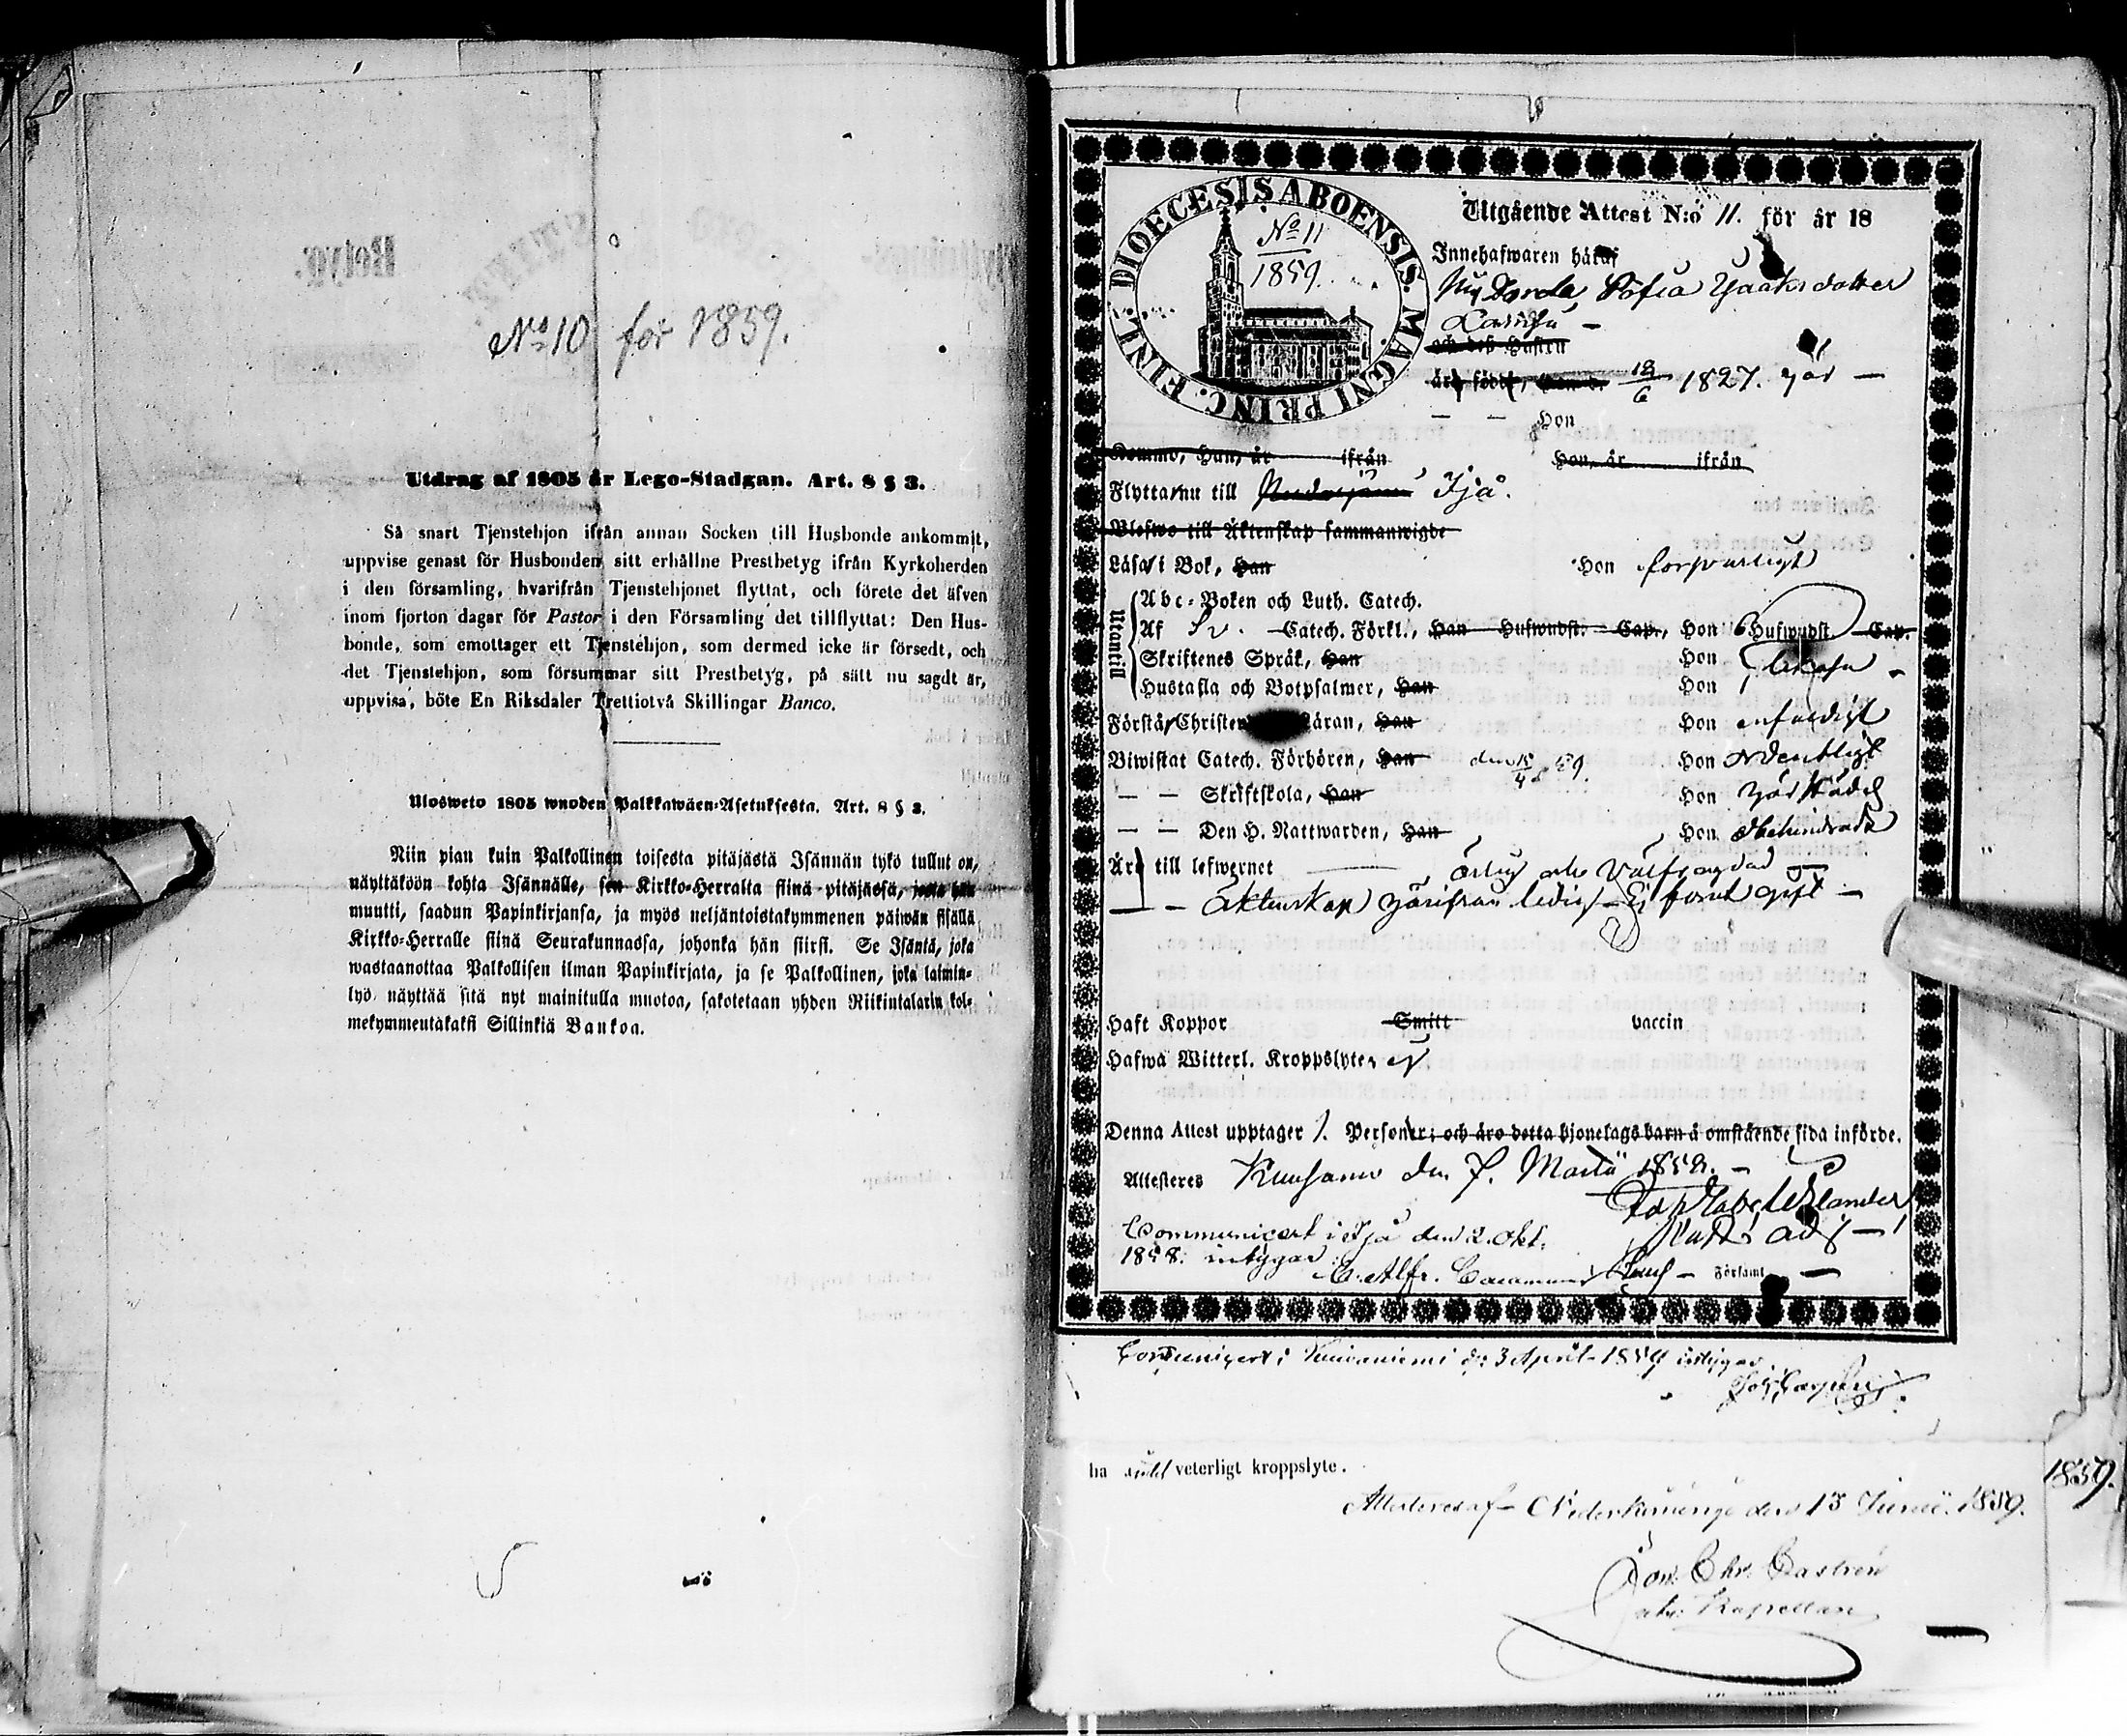 No 10 för 1859.
Utdrag af 1805 år Lego-Stadgan. Art. 8 § 3.
Så snart Tjenstehjon ifrån annan Socken till Husbonde ankommit,
uppvise genast för Husbonden sitt erhållne Prestbetyg ifrån Kyrkoherden
i den församling, hvarifrån Tjenstehjonet flyttat, och förete det äfven
inom fjorton dagar för Pastor i den Församling det tillflyttat: Den Hus-
bonde, som emottager ett Tjenstehjon, som dermed icke är försedt, och
det Tjenstehjon, som försummar sitt Prestbetyg, på sätt nu sagdt är,
uppvisa, böte En Riksdaler Trettiotvå Skillingar Banco.
Ulosweto 1805 wuoden Palkkawäen-Asetuksesta. Art. 8 § 3.
Niin pian kuin Palkollinen toisesta pitäjästä Isännän tykö tullut on,
näyttäköön kohta Isännälle, sen Kirkko-Herralta siinä pitäjässä, josta hän
muutti, saadun Papinkirjansa, ja myös neljäntoistakymmenen päiwän sisällä
Kirkko-Herralle siinä Seurakunnassa, johonka hän siirsi. Se Isäntä, joka
wastaanottaa Palkollisen ilman Papinkirjata, ja se Palkollinen, joka laimin-
lyö näyttää sitä nyt mainitulla muotoa, sakotetaan yhden Riikintalarin kol-
mekymmentäkaksi Sillinkiä Bankoa.
DIOECESIS ABOENSIS. MAGNI PRINC. FINL.
No 11
1859.
Utgående Attest N:o 11. för år 18
Innehafwaren häraf
Sofia
och deß Hustru
äro födde, Han d. 18/6 1827. här —
Hon
Kommo, Han, år ifrån Hon, år ifrån
Flytta nu till Ijå.
Blefwo till Äktenskap sammanwigde
Läsa i Bok, Han Hon försvarligt
Utantill
Abc-Boken och Luth. Catech.
Af Sv. Catech. Förkl., Han Hufwudst. Cap., Hon 6 Hufwudst. Cap.
Skriftenes Språk, Han Hon
Hustafla och Botpsalmer, Han Hon
Förstå Christen läran, Han Hon enfaldigt
Biwistat Catech. Förhören, Han den 15/4 59. Hon ordentligt
— — Skriftskola, Han Hon härstädes
— — Den H. Nattwarden, Han Hon
Äro till lefwernet ärlig och välfrägdad —
— Äktenskap härifrån ledig — Ej förut gift —
Haft Koppor Smitt vaccin
Hafwa Witterl. Kroppslyte, ej
Denna Attest upptager 1. Personer; och äro detta hjonelags barn å omstående sida införde.
Attesteres Kuusamo den 7. Martii 1858. —
Communicert i Ijå den 2. Okt.
1858. intygar
C. Alfr.
Församl.
Communicert i Kuivaniemi d. 3 April 1859 intygar
ha intet veterligt kroppslyte.
1859.
Attesteres af Nederkiminge den 13 Junii 1859.
Jon. Chr. Castrén
Kapellan